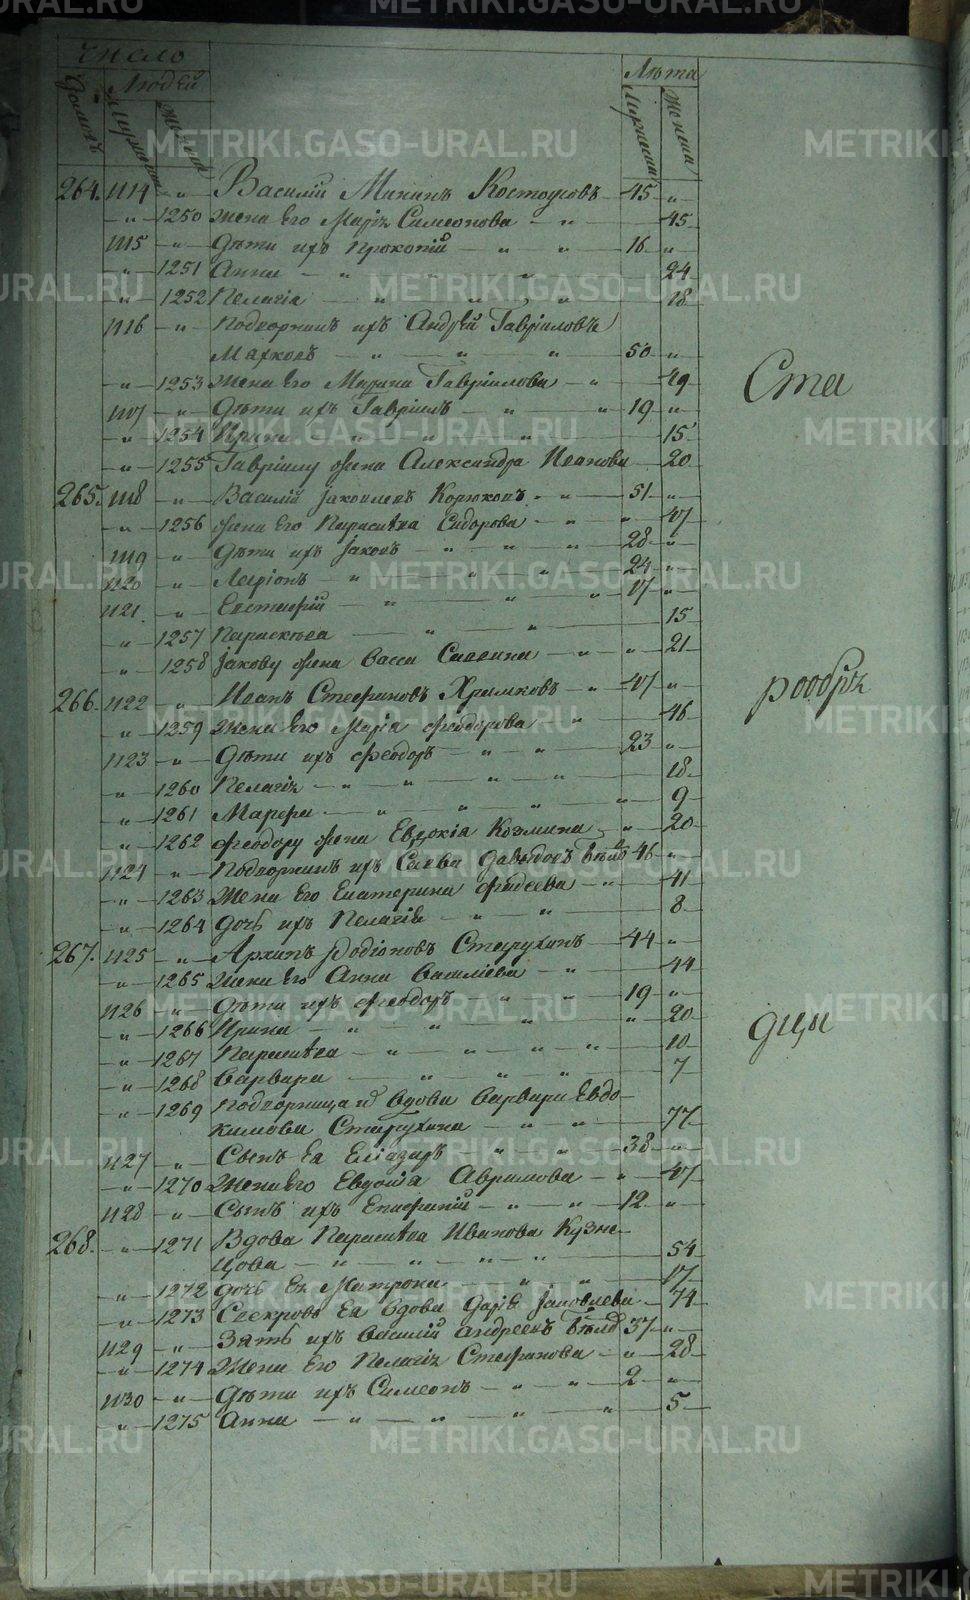 Число
Людей
Лѣта
Домовъ
Мужска
Женска
Мужеска
Женска
264. 1114 „ Василій Мининъ Костоусовъ 45 „
„ 1250 Жена Его Марія Симеонова „ „ 45
1115 „ Дѣти ихъ Прокопій „ „ 16 „
„ 1251 Анна „ „ „ 24
„ 1252 Пелагія „ „ „ 18
1116 „ Подворникъ ихъ Андрей Гавріиловъ
„ „ „ 50 „
„ 1253 Жена Его Марина Гавріилова „ 49
1117 „ Дѣти ихъ Гавріилъ „ „ 19 „
„ 1254 Ирина „ „ „ 15
„ 1255 Гавріилу жена Александра Иванова 20
265. 1118 „ Василій Яковлевъ Корюковъ „ „ 51 „
„ 1256 жена Его Параскева Сидорова „ „ „ 47
1119 „ Дѣти ихъ Яковъ „ „ „ 28 „
1120 „ Ларіонъ „ „ „ 24 „
1121 „ Евстафій „ „ „ 17 „
„ 1257 Параскева „ „ 15
„ 1258 Якову жена Васса Саввина „ „ 21
266. 1122 „ Иванъ Стефановъ Храмковъ „ 47 „
„ 1259 Жена Его Марія Феодорова „ 46
1123 „ Дѣти ихъ Феодоръ „ „ 23 „
„ 1260 Пелагія „ „ „ „ 18
„ 1261 Марфа „ „ „ „ 9
„ 1262 Феодору жена Евдокія Козмина „ „ 20
1124 „ Подворникъ ихъ Савва Давыдовъ 46 „
„ 1263 Жена Его Екатерина Фадеева „ 41
„ 1264 дочь ихъ Пелагія „ „ 8
267. 1125 „ Архипъ Родіоновъ Старухинъ 44 „
„ 1265 Жена Его Анна Василіева „ 44
1126 „ Дѣти ихъ Феодоръ „ „ 19 „
„ 1266 Ирина „ „ „ „ 20
„ 1267 Параскева „ „ „ „ 10
„ 1268 Варвара „ „ „ 7
„ 1269 Подворница и Вдова Варвара Евдо-
кимова Старухина „ „ 77
1127 „ Сынъ Ея Еліазаръ „ „ 38 „
„ 1270 Жена Его Евдокія Аврамова „ „ 47
1128 „ Сынъ ихъ Епифаній „ „ 12 „
268. „ 1271 Вдова Параскева Иванова Кузне-
цова „ „ „ „ 54
„ 1272 дочь Ея Матрона „ „ 17
„ 1273 Свекровь Ея Вдова Дарія Яковлева 74
1129 „ Зять ихъ Василій Андреевъ 37 „
„ 1274 Жена Его Пелагія Стефанова „ 28
1130 „ Дѣти ихъ Симеонъ „ „ 2 „
„ 1275 Анна „ „ „ „ 5
Ста
рообря
дцы
METRIKI.GASO-URAL.RU